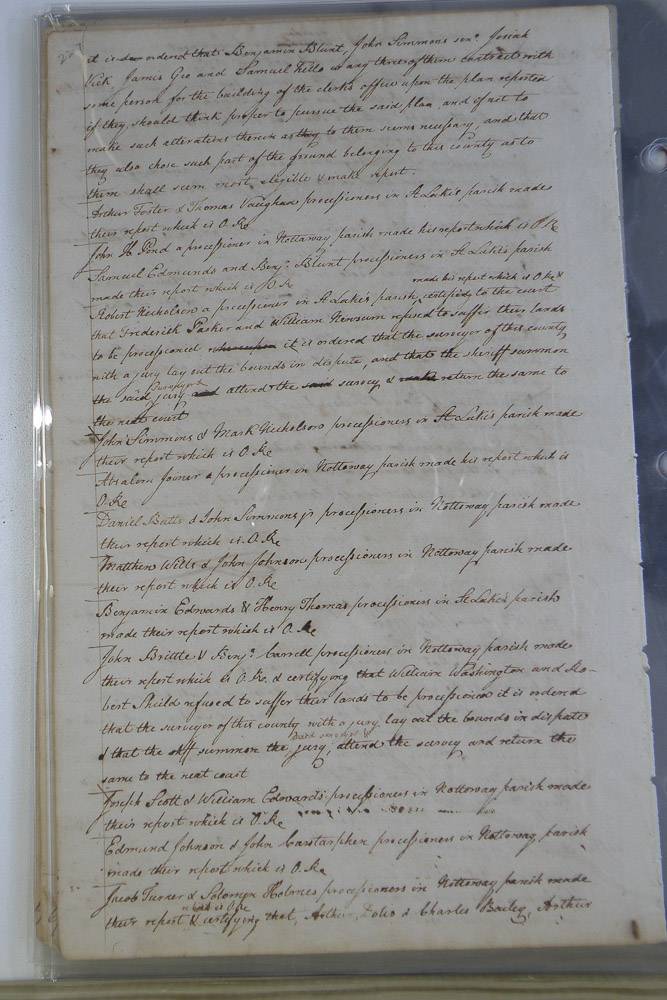 it is ordered that Benjamin Blunt, John Simmons senr. Josiah
Vick James Geo and Samuel Kello or any three of them contract with
some person for the building of the clerks office upon the plan reported
if they should think proper to pursue the said plan, and if not to
make such alterations therein as to them seems necessary, and that
they also chose such part of the ground belonging to this county as to
them shall seem most elegible & make report.
Arthur Foster & Thomas Vaughan processioners in St Luke's parish made
their report which is O. Re
John H. Pond a processioner in Nottoway parish made his report which is O Re
Samuel Edmunds and Benja. Blunt processioners in St Luke's parish
made their report which is O Re
made his report which is O. Re &
Robert Nicholson a processioner in St Luke's parish, certifyed to the court
that Frederick Parker and William Newsum refused to suffer their lands
to be processioned whereupon it is ordered that the surveyor of this county
with a jury lay out the bounds in dispute, and that the sheriff summon
Surveyor &
the said jury and attend the said survey & make return the same to
the next court
John Simmons & Mark Nicholson processioners in St Luke's parish made
their report which is O. Re
Absalom Joiner a processioner in Nottoway parish made his report which is
O. Re
Daniel Butts & John Simmons jr processioners in Nottoway parish made
their report which is O. Re
Matthew Wills & John Johnson processioners in Nottoway parish made
their report which is O. Re
Benjamin Edwards & Henry Thomas processioners in St Luke's parish
made their report which is O. Re
John Brittle & Benja. Carrell processioners in Nottoway parish made
their report which is O. Re. & certifying that William Washington and Ro-
bert Sheild refused to suffer their lands to be processioned it is orderd
that the surveyor of this county with a jury lay out the bounds in dispute
said surveyor &
& that the shff summon the jury, attend the survey and return the
same to the next court
Joseph Scott & William Edwards processioners in Nottoway parish made
their report which is O. Re
Edmund Johnson & John Carstarphen processioners in Nottoway parish
made their report which is O. Re
Jacob Turner & Solomon Holmes processioners in Nottoway parish made
which is O. Re
their report & certifying that, Arthur & Charles Bailey, Arthur